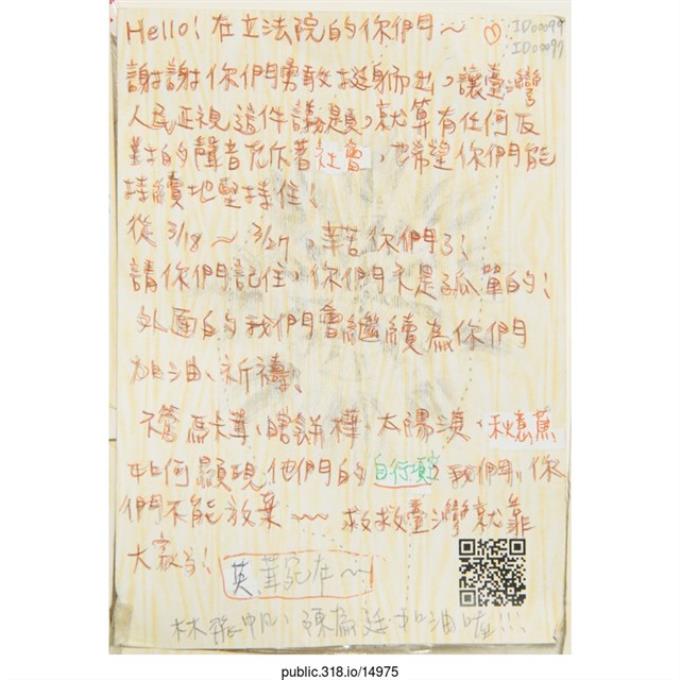 Hello! 在立法院的你們～
ID00099
ID00097
謝謝你們勇敢挺身而出，讓臺灣
人民正視這件議題，就算有任何反
對的聲音充斥著社會，也希望你們能
持續地堅持住！
從 3/18～3/27，辛苦你們了！
請你們記住，你們不是孤單的！
外面的我們會繼續為你們
加油、祈禱、
不管馬卡茸、瞎餅樺、太陽漢、秋意蕉
如何顯現他們的 我們、你
們不能放棄～～ 救救臺灣就靠
大家了！
英 在～
林飛帆、陳為廷加油哇!!!
public.318.io/14975